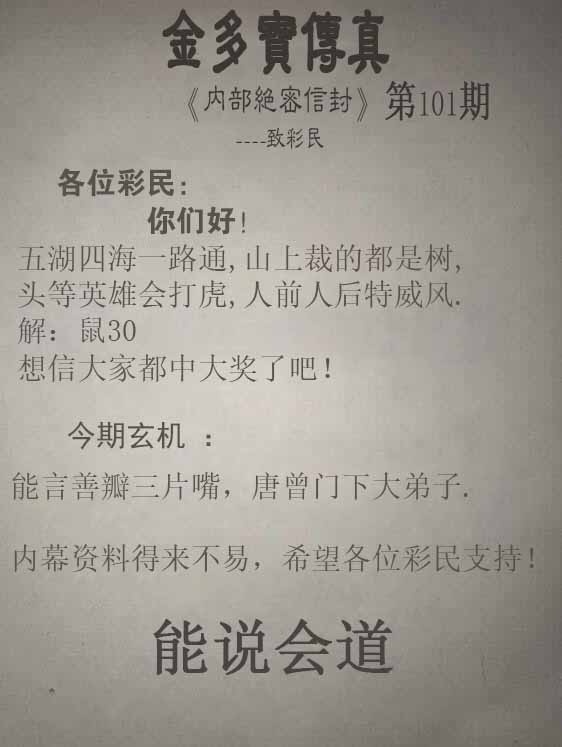 金多寶傳真
《内部絶密信封》第101期
----致彩民
各位彩民:
你们好!
五湖四海一路通,山上裁的都是树,
头等英雄会打虎,人前人后特威风.
解：鼠30
想信大家都中大奖了吧!
今期玄机 ：
能言善瓣三片嘴，唐曾门下大弟子.
内幕资料得来不易，希望各位彩民支持!
能说会道